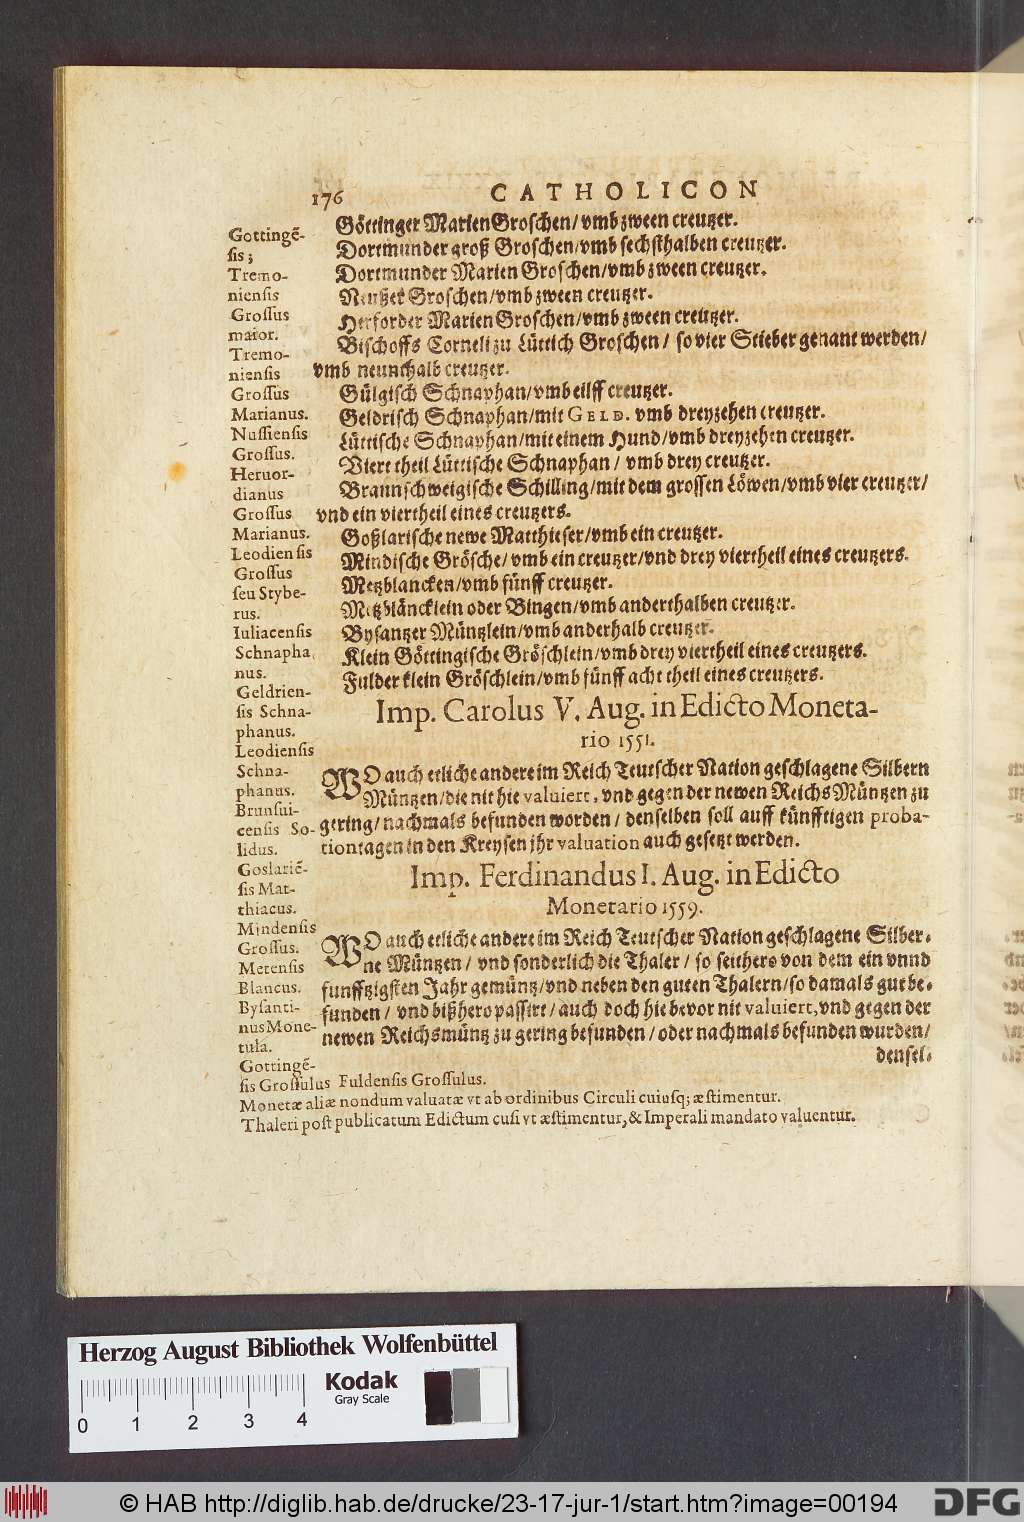 176
CATHOLICON
Göttinger MarienGroschen/vmb zween creutzer.
Dortmunder groß Groschen/vmb sechsthalben creutzer.
Dortmunder Marien Groschen/vmb zween creutzer.
Neusser Groschen/vmb zween creutzer.
Herforder MarienGroschen/vmb zween creutzer.
Bischoffs Corneli zu Lüttich Groschen / so vier Stieber genant werden/
vmb neunthalb creutzer.
Gülgisch Schnaphan/vmb eilff creutzer.
Geldrisch Schnaphan/mit GELD. vmb dreyzehen creutzer.
Lüttische Schnaphan/mit einem Hund/vmb dreyzehen creutzer.
Viert theil Lüttische Schnaphan / vmb drey creutzer.
Braunschweigische Schilling/mit dem grossen Löwen/vmb vier creutzer/
vnd ein viertheil eines creutzers.
Goßlarische newe Matthieser/vmb ein creutzer.
Mindische Grösche/vmb ein creutzer/vnd drey viertheil eines creutzers.
Metzblancken/vmb fünff creutzer.
Metzbläncklein oder Bingen/vmb anderthalben creutzer.
Bysantzer Müntzlein/vmb anderhalb creutzer.
Klein Göttingische Gröschlein/vmb drey viertheil eines creutzers.
Fulder klein Gröschlein/vmb fünff acht theil eines creutzers.
Imp. Carolus V. Aug. in Edicto Moneta-
rio 1551.
WO auch etliche andere im Reich Teutscher Nation geschlagene Silbern
Müntzen/die nit hie valuiert, vnd gegen der newen ReichsMüntzen zu
gering/nachmals befunden worden / denselben soll auff künfftigen proba-
tiontagen in den Kreysen jhr valuation auch gesetzt werden.
Imp. Ferdinandus I. Aug. in Edicto
Monetario 1559.
WO auch etliche andere im Reich Teutscher Nation geschlagene Silber-
ne Müntzen / vnd sonderlich die Thaler / so seithero von dem ein vnnd
funfftzigsten Jahr gemüntz/vnd neben den guten Thalern/so damals gut be-
funden / vnd bißhero passirt/auch doch hiebevor nit valuiert,vnd gegen der
newen Reichsmüntz zu gering befunden / oder nachmals befunden wurden/
densel-
Gottingē-
sis;
Tremo-
niensis
Grossus
maior.
Tremo-
niensis
Grossus
Marianus.
Nussiensis
Grossus.
Heruor-
dianus
Grossus
Marianus.
Leodiensis
Grossus
seu Stybe-
rus.
Iuliacensis
Schnapha
nus.
Geldrien-
sis Schna-
phanus.
Leodiensis
Schna-
phanus.
Brunsui-
censis So-
lidus.
Goslariē-
sis Mat-
thiacus.
Mindensis
Grossus.
Metensis
Blancus.
Bysanti-
nus Mone-
tula.
Gottingē-
sis Grossulus Fuldensis Grossulus.
Monetæ aliæ nondum valuatæ vt ab ordinibus Circuli cuiusq; æstimentur.
Thaleri post publicatum Edictum cusi vt æstimentur,& Imperali mandato valuentur.
Herzog August Bibliothek Wolfenbüttel
Kodak
Gray Scale
0 1 2 3 4
© HAB http://diglib.hab.de/drucke/23-17-jur-1/start.htm?image=00194
DFG